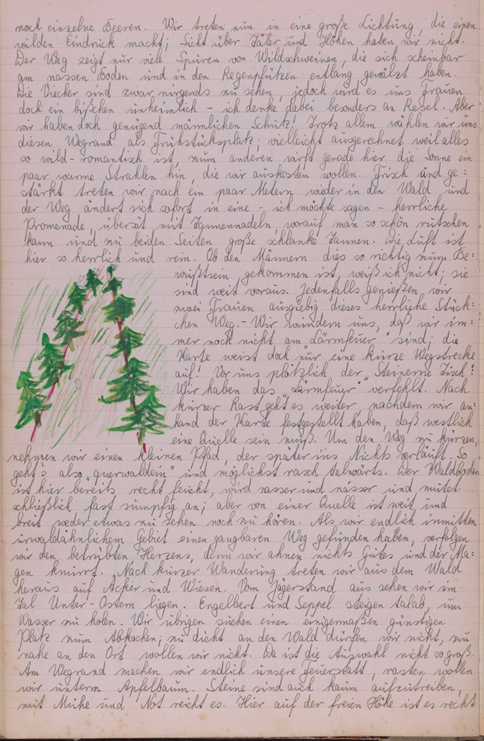 noch einzelne Beeren. Wir treten nun in eine große Lichtung, die einen
wilden Eindruck macht; Sicht über Täler und Höhen haben wir nicht.
Der Weg zeigt nur viele Spuren von Wildschweinen, die sich scheinbar
am nassen Boden und in den Regenpfützen entlang gewälzt haben.
Die Viecher sind zwar nirgends zu sehen, jedoch wird es uns Frauen
doch ein bißchen unheimlich - ich denke dabei besonders an Resel. Aber
wir haben doch genügend männlichen Schutz! Trotz allem wählen wir uns
diesen Wegrand als Frühstücksplatz; vielleicht ausgerechnet weil alles
so wild-romantisch ist, zum anderen wirft gerade hier die Sonne ein
paar warme Strahlen hin, die wir auskosten wollen. Frisch und ge-
stärkt treten wir nach ein paar Metern wieder in den Wald und
der Weg ändert sich sofort in eine - ich möchte sagen - herrliche
Promenade, übersät mit Tannennadeln, worauf man so schön rutschen
kann und zu beiden Seiten große schlanke Tannen. Die Luft ist
hier so herrlich und rein. Ob den Männern dies so richtig zum Be-
wußtsein gekommen ist, weiß ich nicht; sie
sind weit voraus. Jedenfalls genießen, wir
zwei Frauen ausgiebig dieses herrliche Stück-
chen Weg. - Wir wundern uns, daß wir im-
mer noch nicht am "Lärmfeuer" sind; die
Karte weist doch nur eine kurze Wegstrecke
auf! Vor uns plötzlich der "Steinerne Tisch".
Wir haben das "Lärmfeuer" verfehlt. Nach
kurzer Rast geht es weiter, nachdem wir an-
hand der Karte festgestellt haben, daß westlich
eine Quelle sein muß. Um den Weg zu kürzen,
nehmen wir einen kleinen Pfad, der später ins Nichts verläuft. So
geht's also "querwaldein" und möglichst rasch talwärts. Der Waldboden
ist hier bereits recht feucht, wird nasser und nasser und mutet
schließlich fast sumpfig an; aber von einer Quelle ist weit und
breit weder etwas zu sehen noch zu hören. Als wir endlich inmitten
urwaldähnlichem Gebiet einen gangbaren Weg gefunden haben, verfolgen
wir den betrübten Herzens, denn wir ahnen nichts Gutes und der Ma-
gen knurrt. Nach kurzer Wanderung treten wir aus dem Wald
heraus auf Äcker und Wiesen. Vom Jägerstand aus sehen wir im
Tal Unter-Ostern liegen. Engelbert und Seppel steigen talab, um
Wasser zu holen. Wir übrigen suchen einen einigermaßen günstigen
Platz zum Abkochen; zu dicht an den Wald dürfen wir nicht, zu
nahe an den Ort wollen wir nicht. Da ist die Auswahl nicht so groß.
Am Wegrand machen wir endlich unsere Feuerstatt, rasten wollen
wir unterm Apfelbaum. Steine sind auch kaum aufzutreiben,
mit Mühe und Not reicht es. Hier auf der freien Höhe ist es recht